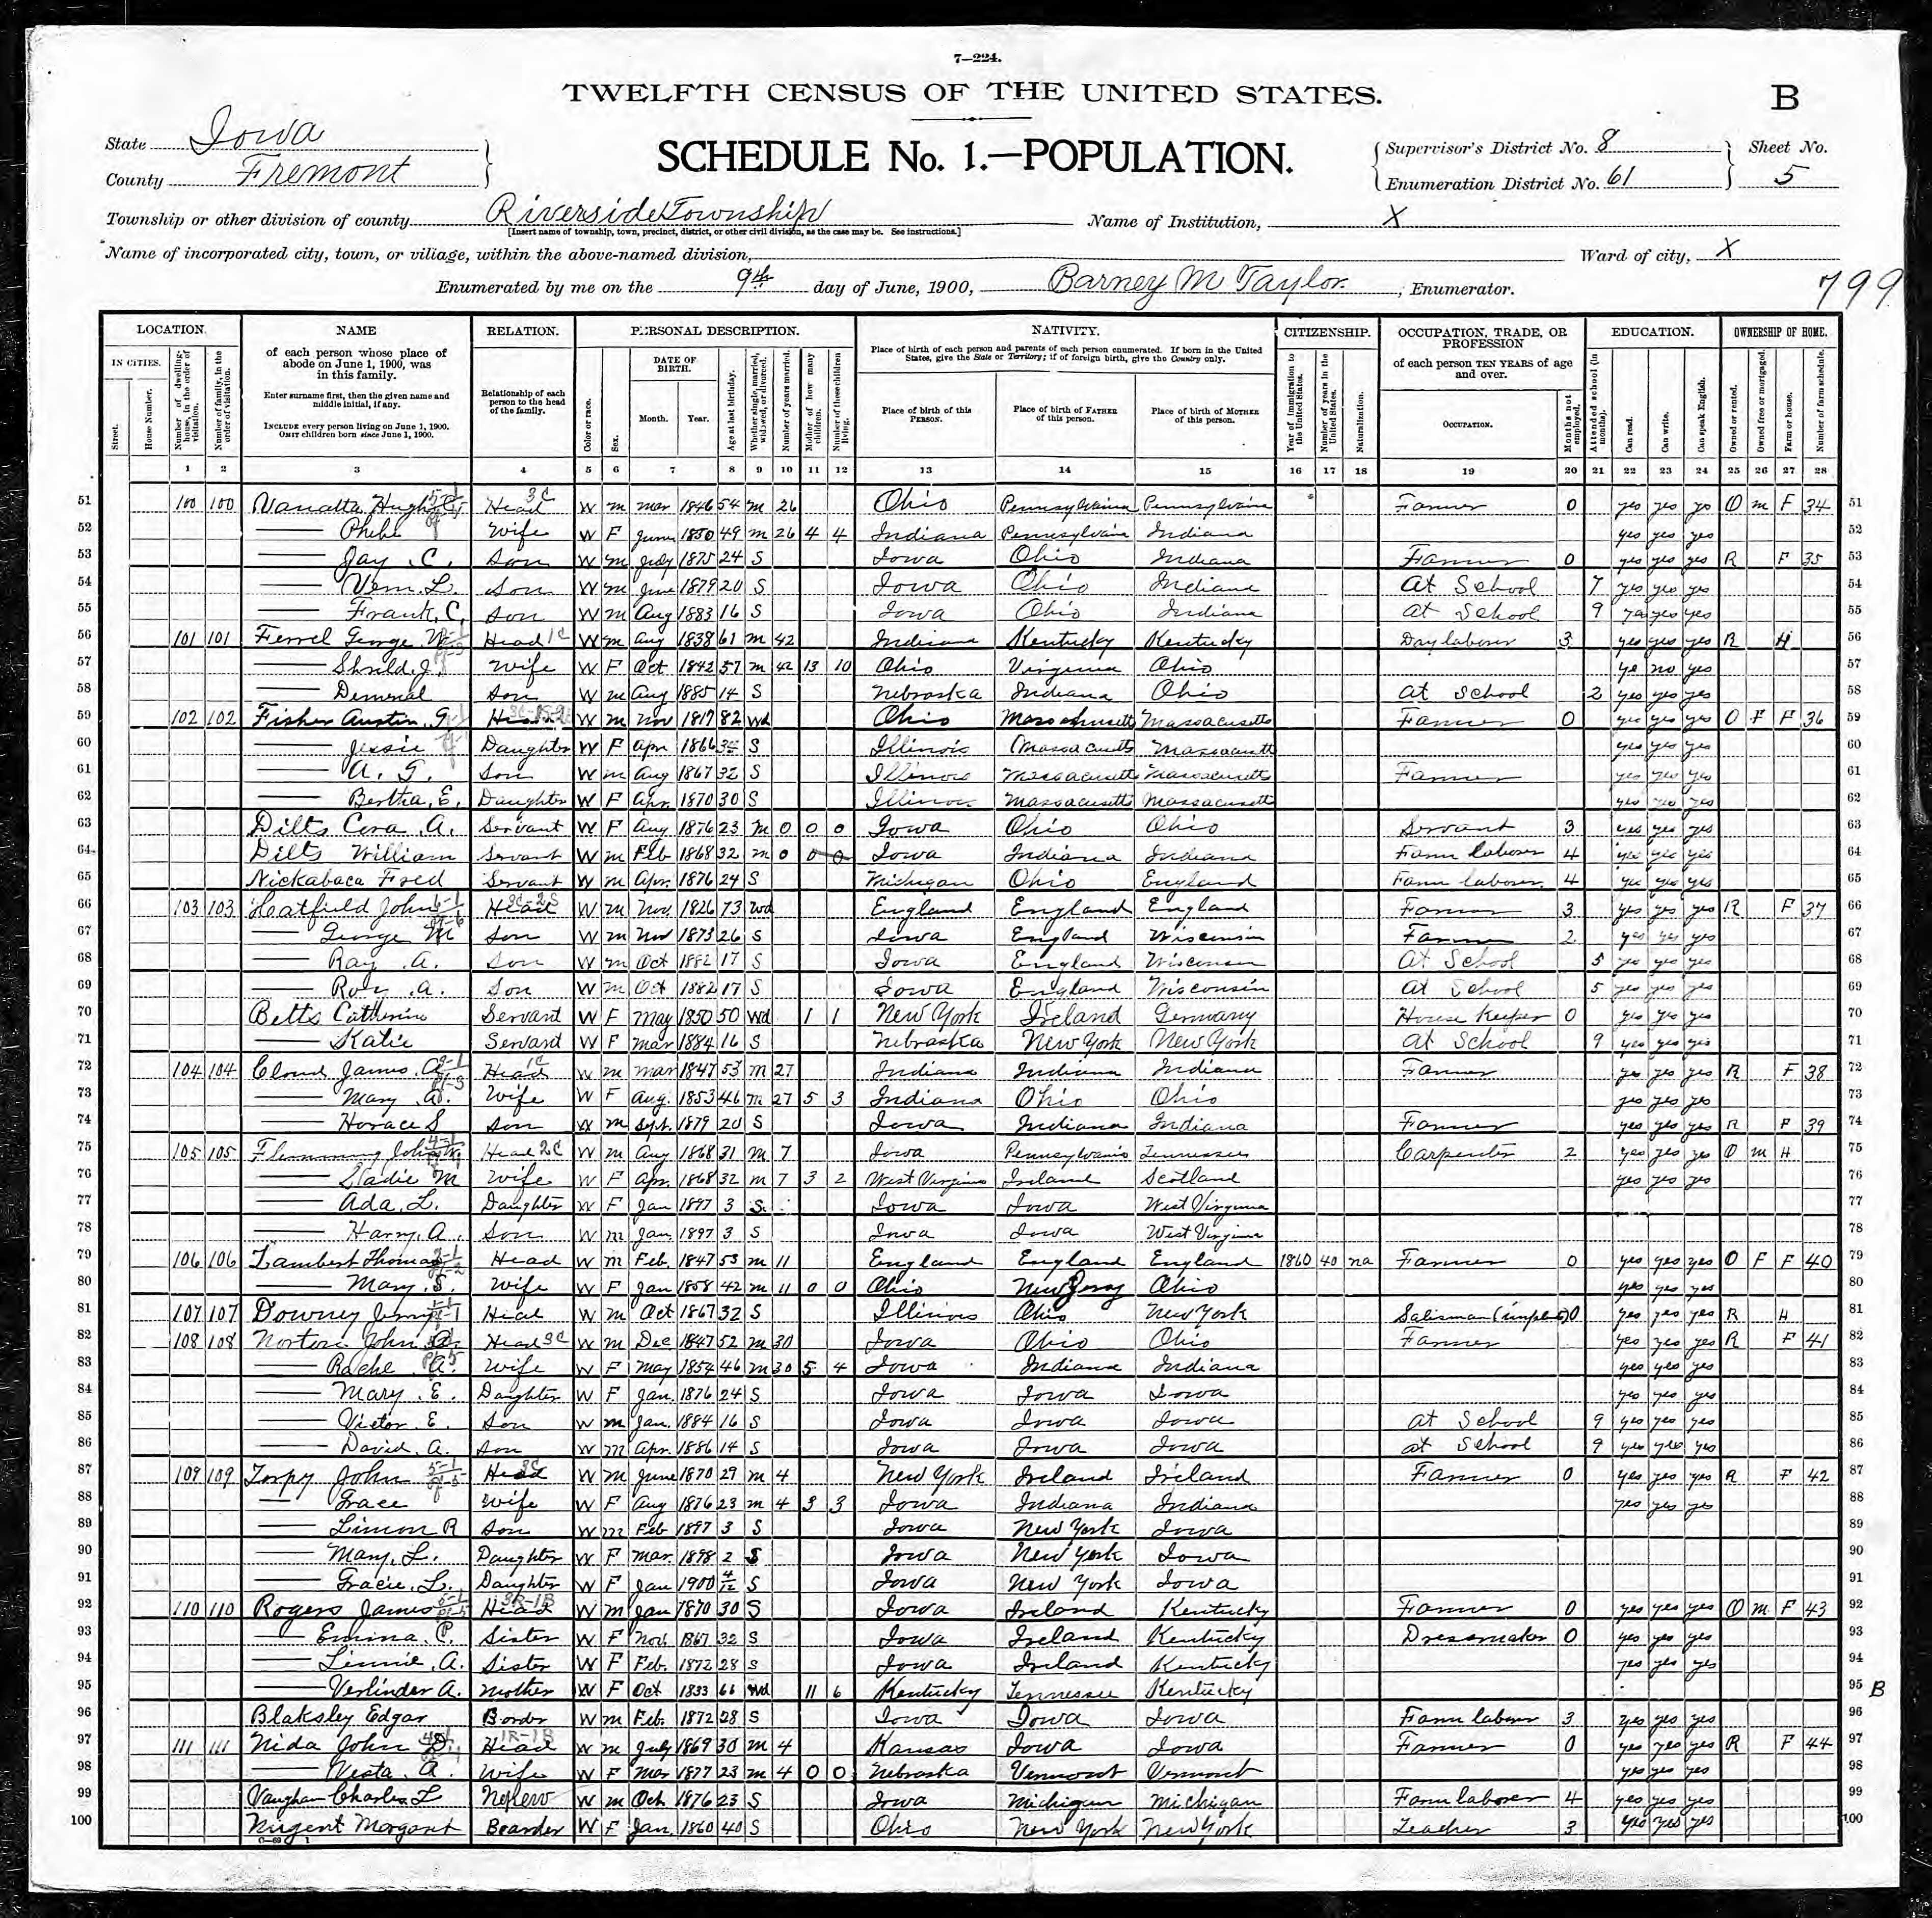 7—224.
TWELFTH CENSUS OF THE UNITED STATES.
B
State Iowa
County Fremont
SCHEDULE No. 1.—POPULATION.
Supervisor's District No. 8
Enumeration District No. 61
Sheet No.
5
Township or other division of county Riverside Township
[Insert name of township, town, precinct, district, or other civil division, as the case may be. See instructions.]
Name of Institution, X
Name of incorporated city, town, or village, within the above-named division,
Ward of city, X
Enumerated by me on the 9th day of June, 1900, Barney M Taylor, Enumerator.
799
LOCATION. NAME RELATION. PERSONAL DESCRIPTION. NATIVITY. CITIZENSHIP. OCCUPATION, TRADE, OR PROFESSION EDUCATION. OWNERSHIP OF HOME.
IN CITIES.
Street.
House Number.
Number of dwelling-house, in the order of visitation.
Number of family, in the order of visitation.
of each person whose place of abode on June 1, 1900, was in this family.
Enter surname first, then the given name and middle initial, if any.
INCLUDE every person living on June 1, 1900.
OMIT children born since June 1, 1900.
Relationship of each person to the head of the family.
Color or race.
Sex.
DATE OF BIRTH.
Month. Year.
Age at last birthday.
Whether single, married, widowed, or divorced.
Number of years married.
Mother of how many children.
Number of these children living.
Place of birth of each person and parents of each person enumerated. If born in the United States, give the State or Territory; if of foreign birth, give the Country only.
Place of birth of this PERSON.
Place of birth of FATHER of this person.
Place of birth of MOTHER of this person.
Year of immigration to the United States.
Number of years in the United States.
Naturalization.
of each person TEN YEARS of age and over.
OCCUPATION.
Months not employed.
Attended school (in months).
Can read.
Can write.
Can speak English.
Owned or rented.
Owned free or mortgaged.
Farm or house.
Number of farm schedule.
1 2 3 4 5 6 7 8 9 10 11 12 13 14 15 16 17 18 19 20 21 22 23 24 25 26 27 28
51 100 100 Vanatta Hugh Head W m mar 1846 54 m 26 Ohio Pennsylvania Pennsylvania Farmer 0 yes yes yes O m F 34 51
52 Phebe Wife W F June 1850 49 m 26 4 4 Indiana Pennsylvania Indiana yes yes yes 52
53 Jay C. Son W m July 1875 24 S Iowa Ohio Indiana Farmer 0 yes yes yes R F 35 53
54 Vern L. Son W m June 1879 20 S Iowa Ohio Indiana At School 7 yes yes yes 54
55 Frank C. Son W m Aug 1883 16 S Iowa Ohio Indiana at School 9 yes yes yes 55
56 101 101 Ferrel George W Head 1C W m Aug 1838 61 m 42 Indiana Kentucky Kentucky Day laborer 3 yes yes yes R H 56
57 J. Wife W F Oct 1842 57 m 42 13 10 Ohio Virginia Ohio ye no yes 57
58 Son W m Aug 1885 14 S Nebraska Indiana Ohio at School 2 yes yes yes 58
59 102 102 Fisher Austin G Head W m Nov 1817 82 Wd Ohio Massachusetts Massacusetts Farmer 0 yes yes yes O F F 36 59
60 Jessie Daughter W F Apr 1866 S Illinois Massacusetts Massacusett yes yes yes 60
61 A. G. Son W m Aug 1867 32 S Illinois Massacusetts Massacusetts Farmer yes yes yes 61
62 Bertha, E. Daughter W F Apr. 1870 30 S Illinois Massacusetts Massacusett yes yes yes 62
63 Dilts Cora A. Servant W F Aug 1876 23 m 0 0 0 Iowa Ohio Ohio Servant 3 yes yes yes 63
64 Dilts William Servant W m Feb 1868 32 m 0 0 0 Iowa Indiana Indiana Farm laborer 4 yes yes yes 64
65 Nickabaca Fred Servant W m Apr. 1876 24 S Michigan Ohio England Farm laborer 4 yes yes yes 65
66 103 103 Hatfield John Head W m Nov. 1826 73 Wd England England England Farmer 3 yes yes yes R F 37 66
67 George M Son W m Nov 1873 26 S Iowa England Wisconsin Farmer 2 yes yes yes 67
68 Ray A. Son W m Oct 1882 17 S Iowa England Wisconsin At School 5 yes yes yes 68
69 Roy A. Son W m Oct 1882 17 S Iowa England Wisconsin at School 5 yes yes yes 69
70 Betts Catherine Servant W F May 1850 50 Wd 1 1 New York Ireland Germany House Keeper 0 yes yes yes 70
71 Katie Servant W F Mar 1884 16 S Nebraska New York New York at School 9 yes yes yes 71
72 104 104 Cloud James A Head 1C W m Mar 1847 53 m 27 Indiana Indiana Indiana Farmer yes yes yes R F 38 72
73 Mary A. Wife W F Aug. 1853 46 m 27 5 3 Indiana Ohio Ohio yes yes yes 73
74 Horace S Son W m Sept. 1879 20 S Iowa Indiana Indiana Farmer yes yes yes R F 39 74
75 105 105 Flemming John W. Head 2C W m Aug 1868 31 m 7 Iowa Pennsylvania Tennessee Carpenter 2 yes yes yes O m H 75
76 Sladie M Wife W F Apr. 1868 32 m 7 3 2 West Virginia Ireland Scotland yes yes yes 76
77 Ada, L. Daughter W F Jan 1897 3 S Iowa Iowa West Virginia 77
78 Harry, A. Son W m Jan. 1897 3 S Iowa Iowa West Virginia 78
79 106 106 Lambert Thomas Head W m Feb. 1847 53 m 11 England England England 1860 40 na Farmer 0 yes yes yes O F F 40 79
80 Mary S. Wife W F Jan 1858 42 m 11 0 0 Ohio New Jersy Ohio yes yes yes 80
81 107 107 Downey Jerry Head W m Oct 1867 32 S Illinois Ohio New York Salisman 0 yes yes yes R H 81
82 108 108 Norton John A. Head 3C W m Dec 1847 52 m 30 Iowa Ohio Ohio Farmer yes yes yes R F 41 82
83 Rache A. Wife W F May 1854 46 m 30 5 4 Iowa Indiana Indiana yes yes yes 83
84 Mary E. Daughter W F Jan. 1876 24 S Iowa Iowa Iowa yes yes yes 84
85 Victor E. Son W m Jan. 1884 16 S Iowa Iowa Iowa at School 9 yes yes yes 85
86 David A. Son W m Apr. 1886 14 S Iowa Iowa Iowa at School 9 yes yes yes 86
87 109 109 Torpy John Head W m June 1870 29 m 4 New York Ireland Ireland Farmer 0 yes yes yes R F 42 87
88 Grace Wife W F Aug 1876 23 m 4 3 3 Iowa Indiana Indiana yes yes yes 88
89 Limon R Son W m Feb 1897 3 S Iowa New York Iowa 89
90 Mary, L. Daughter W F Mar. 1898 2 S Iowa New York Iowa 90
91 Gracie, L. Daughter W F Jan 1900 4/12 S Iowa New York Iowa 91
92 110 110 Rogers James Head W m Jan 1870 30 S Iowa Ireland Kentucky Farmer 0 yes yes yes O m F 43 92
93 Emma, P. Sister W F Nov. 1867 32 S Iowa Ireland Kentucky Dressmaker 0 yes yes yes 93
94 Linnie, A. Sister W F Feb. 1872 28 S Iowa Ireland Kentucky yes yes yes 94
95 Verlinder A. Mother W F Oct 1833 66 Wd 11 6 Kentucky Tennessee Kentucky 95 B
96 Blaksley Edgar Border W m Feb. 1872 28 S Iowa Iowa Iowa Farm labour 3 yes yes yes 96
97 111 111 Nida John D. Head W m July 1869 30 m 4 Kansas Iowa Iowa Farmer 0 yes yes yes R F 44 97
98 Vesta A. Wife W F Mar 1877 23 m 4 0 0 Nebraska Vermont Vermont yes yes yes 98
99 Vaughan Charles L Nephew W m Oct 1876 23 S Iowa Michigan Michigan Farm laborer 4 yes yes yes 99
100 Nugent Margaret Boarder W F Jan. 1860 40 S Ohio New York New York Teacher 3 yes yes yes 100